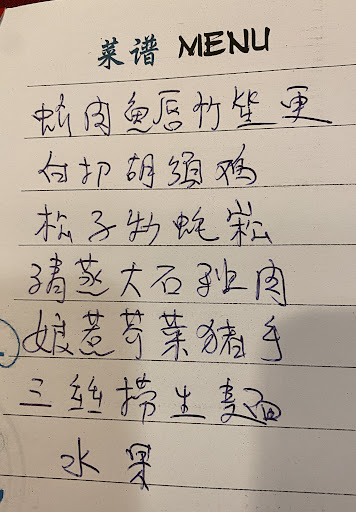 菜谱 MENU
蛇肉魚唇竹笙羹
白切胡須鸡
松子炒蚝崧
清蒸大石斑肉
娘惹芥菜猪手
三絲捞生麵
水果